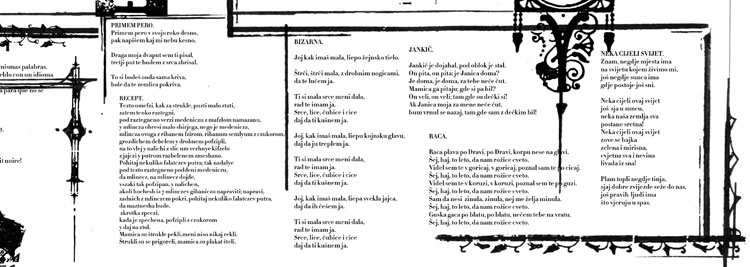 mismas palabras.
eblo con un idioma
a para que no se
it noire!
PRIMEM PERO.
Primem pero v svojo roko desno,
pak napišem kaj mi nebu kesno.
Draga moja dvaput sem ti pisal,
tretji put te budem z srca zbrisal.
Tu si budeš onda sama kriva,
bole da te zemlica pokriva.
RECEPT.
Testo omefni, kak za strukle, pusti malo stati,
zatem tenko raztegni,
pod raztegneno vrzni medenicu z mafdom namazanu,
v mlincza obresi malo shirjega, nego je medenicza,
mlinczu ovoga z ribanem fzirom, ribanum semlyum z czukorom,
grozdichem debelem y drobnom pofzipli,
na to vlej z nalichi z slic um verhnye kifzelo
z jajczi y putrom razbelenem zmeshano.
Pohitaj nekuliko falatczev putra; tak nadalye
pod tezto raztegneno poddeni medeniczu,
da mlinczu, na mlinecz dojde,
vszaki tak pofzipan, y nalichen,
akoli hochesh iz 7 mlinczev gibaniczu napraviti; napravi,
zadnich z mlinczom pokri, pohitaj nekuliko falatczev putra.
da masztneша bude,
zkrotka zpeczi,
kada je zpechena, pofzipli z czukorom
y daj na stol.
Mamica su štrukle pekli,meni nisu nikaj rekli.
Štrukli su se prigoreli, mamica su plakat šteli.
BIZARNA.
Joj kak imaš mala, liepo žejnsko tielo.
Štrči, štrči mala, z drobnim nogicami,
da te lučem ja.
Ti si mala srce meni dala,
rad te imam ja.
Srce, lice, čubice i cice
daj da ti kušnem ja.
Joj, kak imaš mala, liepu kojnsku glavu,
daj da ju treplem ja.
Ti si mala srce meni dala,
rad te imam ja.
Srce, lice, čubice i cice
daj da ti kušnem ja.
Joj, kak imaš mala, liepa svekla jajca,
daj da ih češem ja.
Ti si mala srce meni dala,
rad te imam ja.
Srce, lice, čubice i cice
daj da ti kušnem ja.
JANKIČ.
Jankič je dojahal, pod oblok je stal.
On pita, on pita; je Janica doma?
Je doma, je doma, za tebe neče čut.
Mamica ga pitaju; gde si pa bil?
On veli, on veli; tam gde su dečki si!
Ak Janica moja za mene neče čut,
bum vrnul se nazaj, tam gde sam z dečkim bil!
RACA.
Raca plava po Dravi, po Dravi, korpu nese na glavi.
Šej, haj, to leto, da nam rožice cveto.
Videl sem te v goricaj, v goricaj, poznal sam te po cicaj.
Šej, haj, to leto, da nam rožice cveto.
Videl sem te v koruzi, v koruzi, poznal sem te po guzi.
Šej, haj, to leto, da nam rožice cveto.
Sam da nesi zinula, zinula, nej me želja minula.
Šej, haj, to leto, da nam rožice cveto.
Guska gaca po blatu, po blatu, nečem tebe na vratu.
Šej, haj, to leto, da nam rožice cveto.
NEKA CIJELI SVIJET.
Znam, negdje mjesta ima
na svijetu kojem živimo mi,
još negdje sunca ima
gdje postoje još sni.
Neka cijeli ovaj svijet
još sja u suncu,
neka naša zemlja sva
postane sretna!
Neka cijeli ovaj svijet
zove se bajka
zelena i mirisna,
cvjetna sva i nevina
livada iz sna!
Plam topli negdje tinja,
sjaj dobre zvijezde seže do nas,
još pravih ljudi ima
što vjeruju u spas.